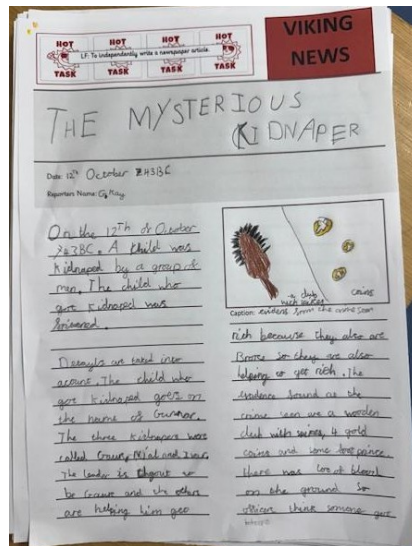 HOT TASK
HOT TASK
HOT TASK
HOT TASK
LF: To independently write a newspaper article.
VIKING
NEWS
THE MYSTERIOUS
KIDNAPER
Date: 12th October 743BC
Reporters Name:
On the 12Th of October
743BC. A child was
kidnaped by a group of
men. The child who
got kidnaped was
Deatayls are taked into
acount. The child who
got kidnaped goes on
the name of Gunnar.
The three kidnapers were
called and Ivar.
The leader is to
be and the others
are helping him get
club
with spikes
coins
Caption: evidens from the crime seen
rich because they also are
so they are also
helping to get rich. The
evidence found at the
crime seen are a wooden
club with spikes, 4 gold
coins and some foot prince.
there was loo of blood
on the ground so
officers think someone got